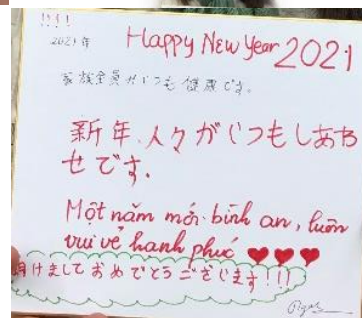 !!!!
2021年
Happy New Year 2021
家族全員がいつも健康です。
新年、人々がいつもしあわ
せです.
Một năm mới bình an, luôn
vui vẻ hạnh phúc
けましておめでとうございます!!!